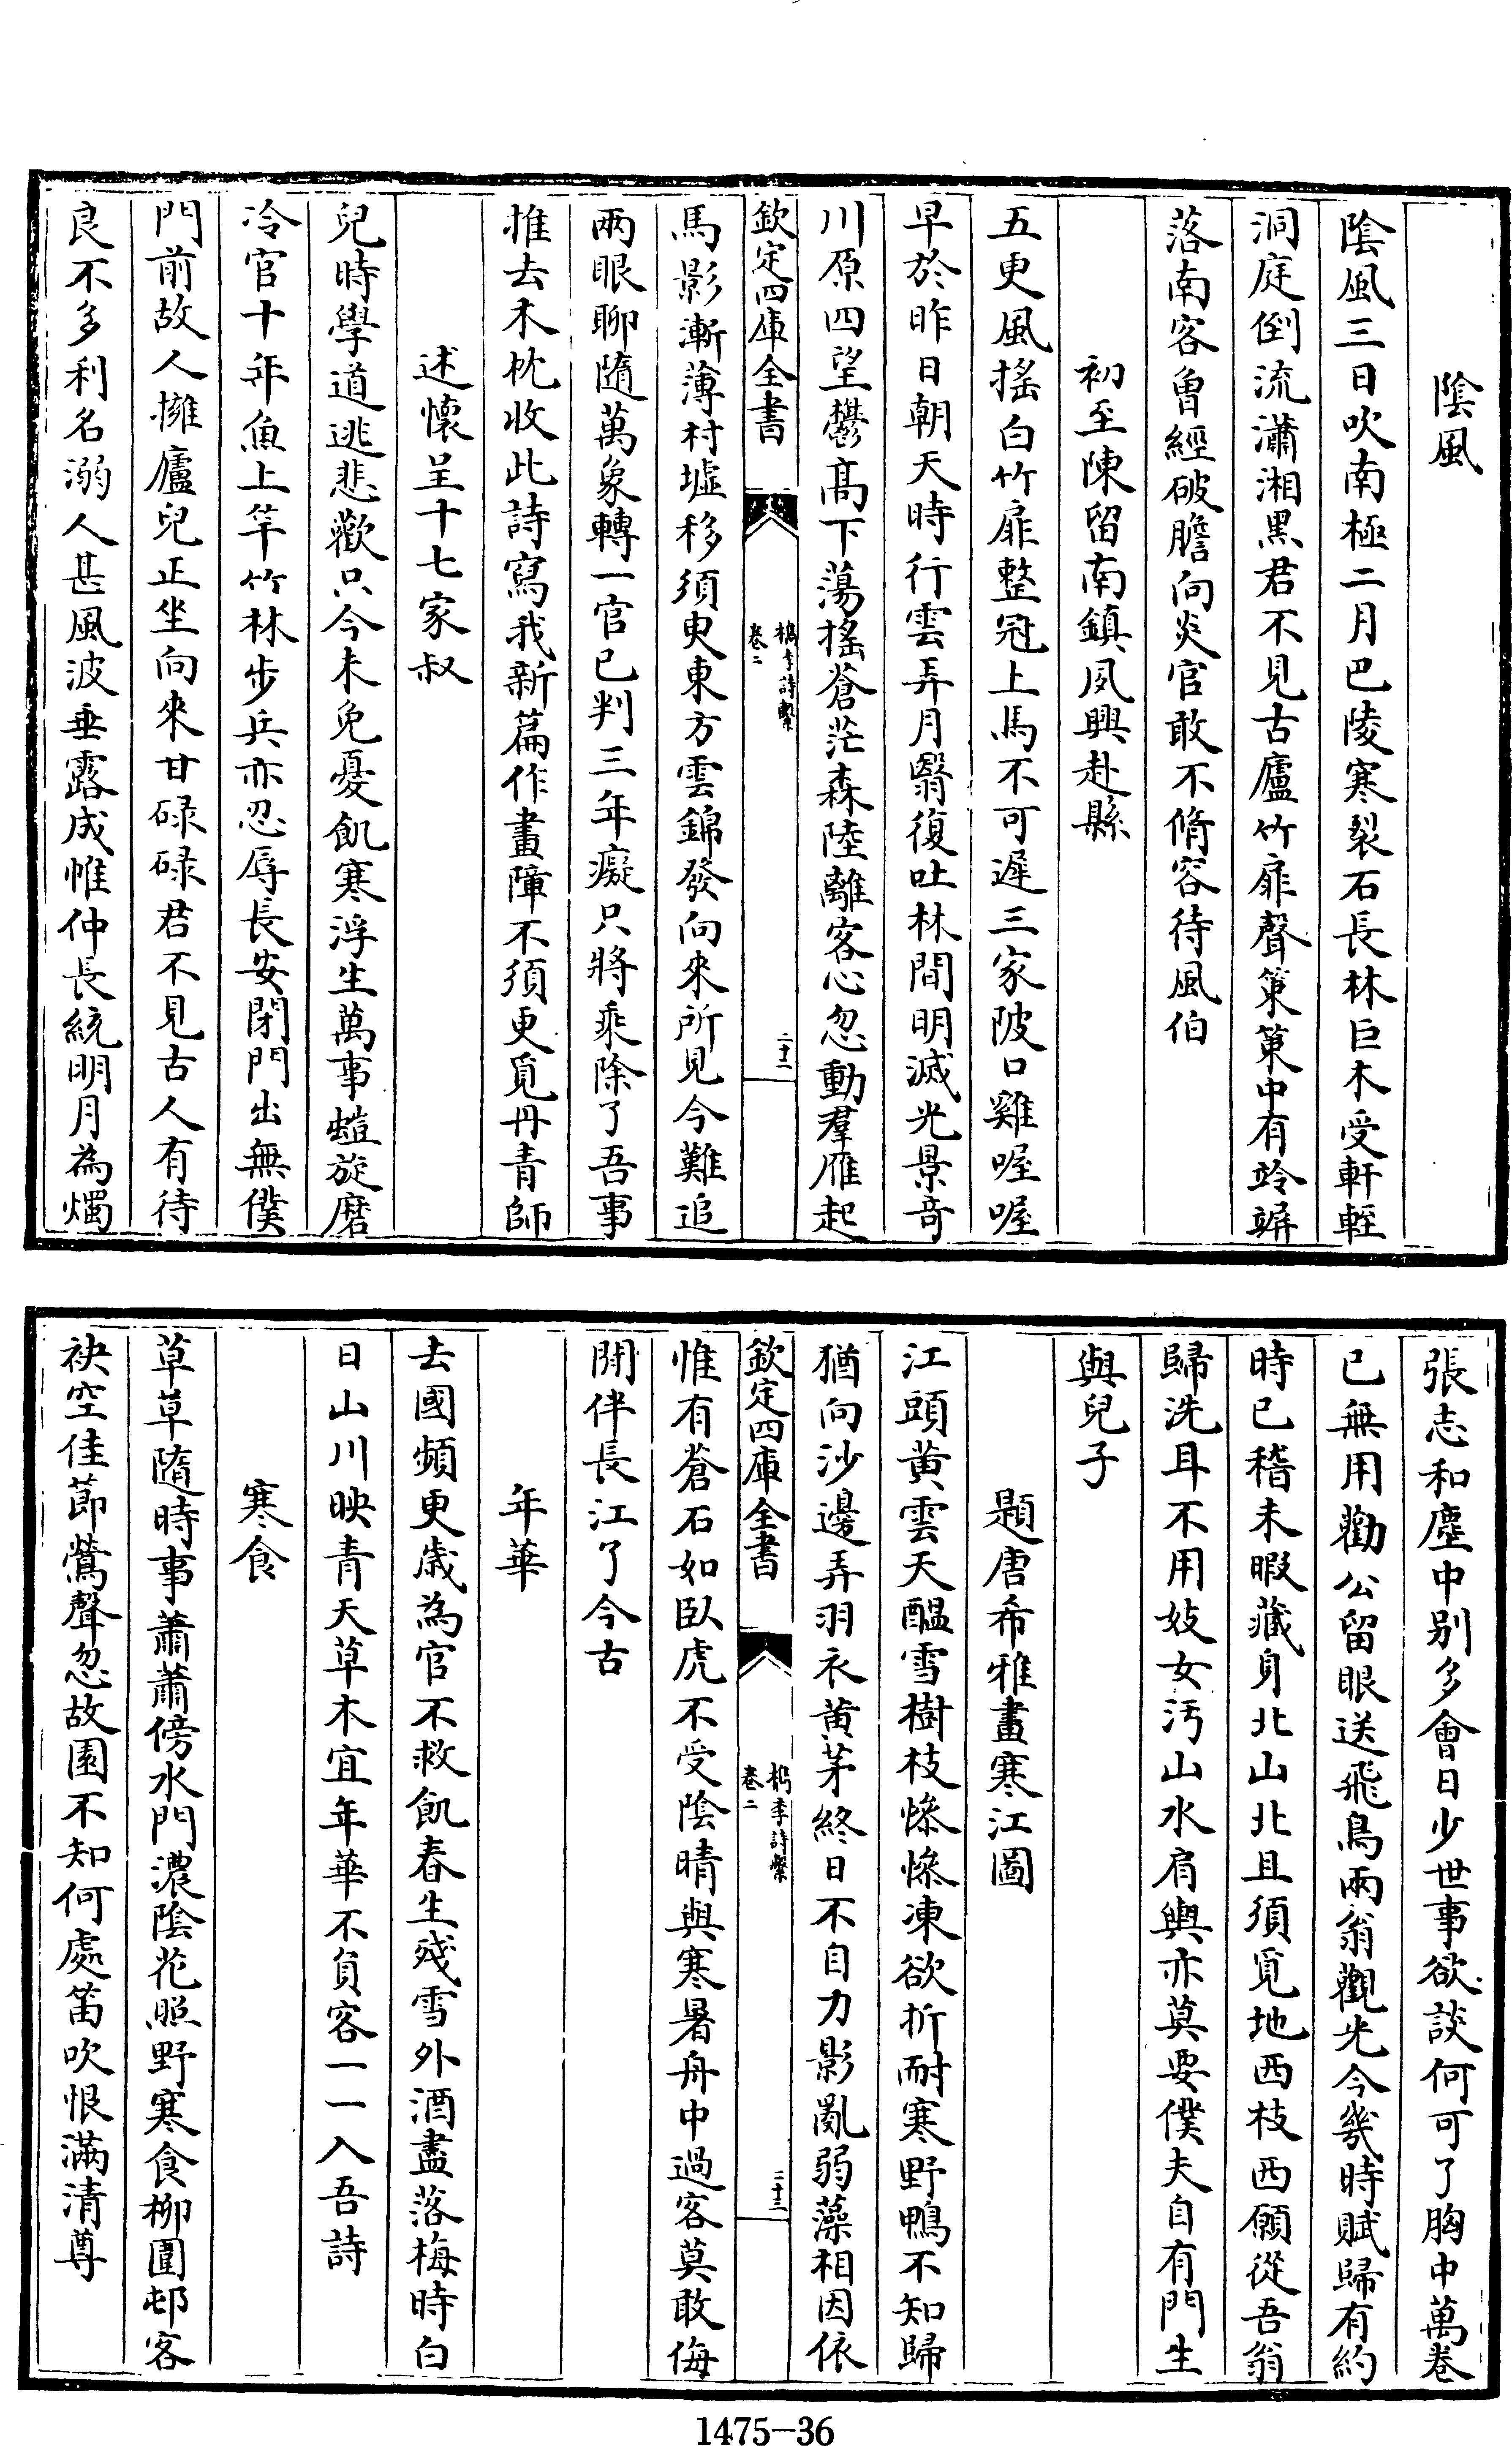 陰風
陰風三日吹南極二月巴陵寒裂石長林巨木受軒輊
洞庭倒流瀟湘黑君不見古廬竹扉聲策策中有竛竮
落南客曾經破膽向炎官敢不脩容待風伯
初至陳留南鎮夙興赴縣
五更風搖白竹扉整冠上馬不可遲三家陂口雞喔喔
早於昨日朝天時行雲弄月翳復吐林間明滅光景竒
川原四望鬱髙下蕩搖蒼茫森陸離客心忽動羣雁起
欽定四庫全書
檇李詩繫
卷二
二十二
馬影漸薄村墟移須臾東方雲錦發向來所見今難追
兩眼聊隨萬象轉一官已判三年癡只將乘除了吾事
推去木枕收此詩寫我新篇作畫障不須更覓丹青師
述懷呈十七家叔
兒時學道逃悲歡只今未免憂飢寒浮生萬事螘旋磨
冷官十年魚上竿竹林步兵亦忍辱長安閉門出無僕
門前故人擁廬兒正坐向來甘碌碌君不見古人有待
良不多利名溺人甚風波垂露成帷仲長統明月為燭
張志和塵中别多會日少世事欲談何可了胸中萬卷
已無用勸公留眼送飛鳥兩翁觀光今幾時賦歸有約
時已稽未暇藏身北山北且須覓地西枝西願從吾翁
歸洗耳不用妓女汚山水肩輿亦莫要僕夫自有門生
與兒子
題唐希雅畫寒江圖
江頭黄雲天醖雪樹枝慘慘凍欲折耐寒野鴨不知歸
猶向沙邊弄羽衣黄茅終日不自力影亂弱藻相因依
欽定四庫全書
檇李詩繫
卷二
二十三
惟有蒼石如臥虎不受陰晴與寒暑舟中過客莫敢侮
閒伴長江了今古
年華
去國頻更歲為官不救飢春生殘雪外酒盡落梅時白
日山川映青天草木宜年華不負客一一入吾詩
寒食
草草隨時事蕭蕭傍水門濃陰花照野寒食柳圍邨客
袂空佳節鶯聲忽故園不知何處笛吹恨滿清尊
1475-36